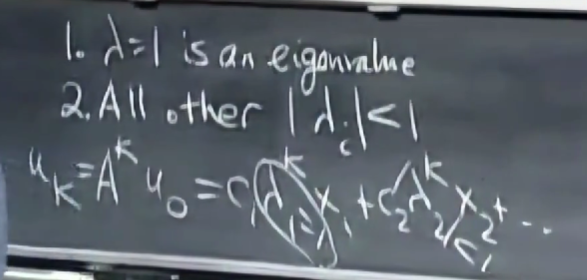 1. λ=1 is an eigenvalue
2. All other |λᵢ|<1
u_K = A^K u_0 = c_1 λ_1^K x_1 + c_2 λ_2^K x_2 + ...
=1 <1